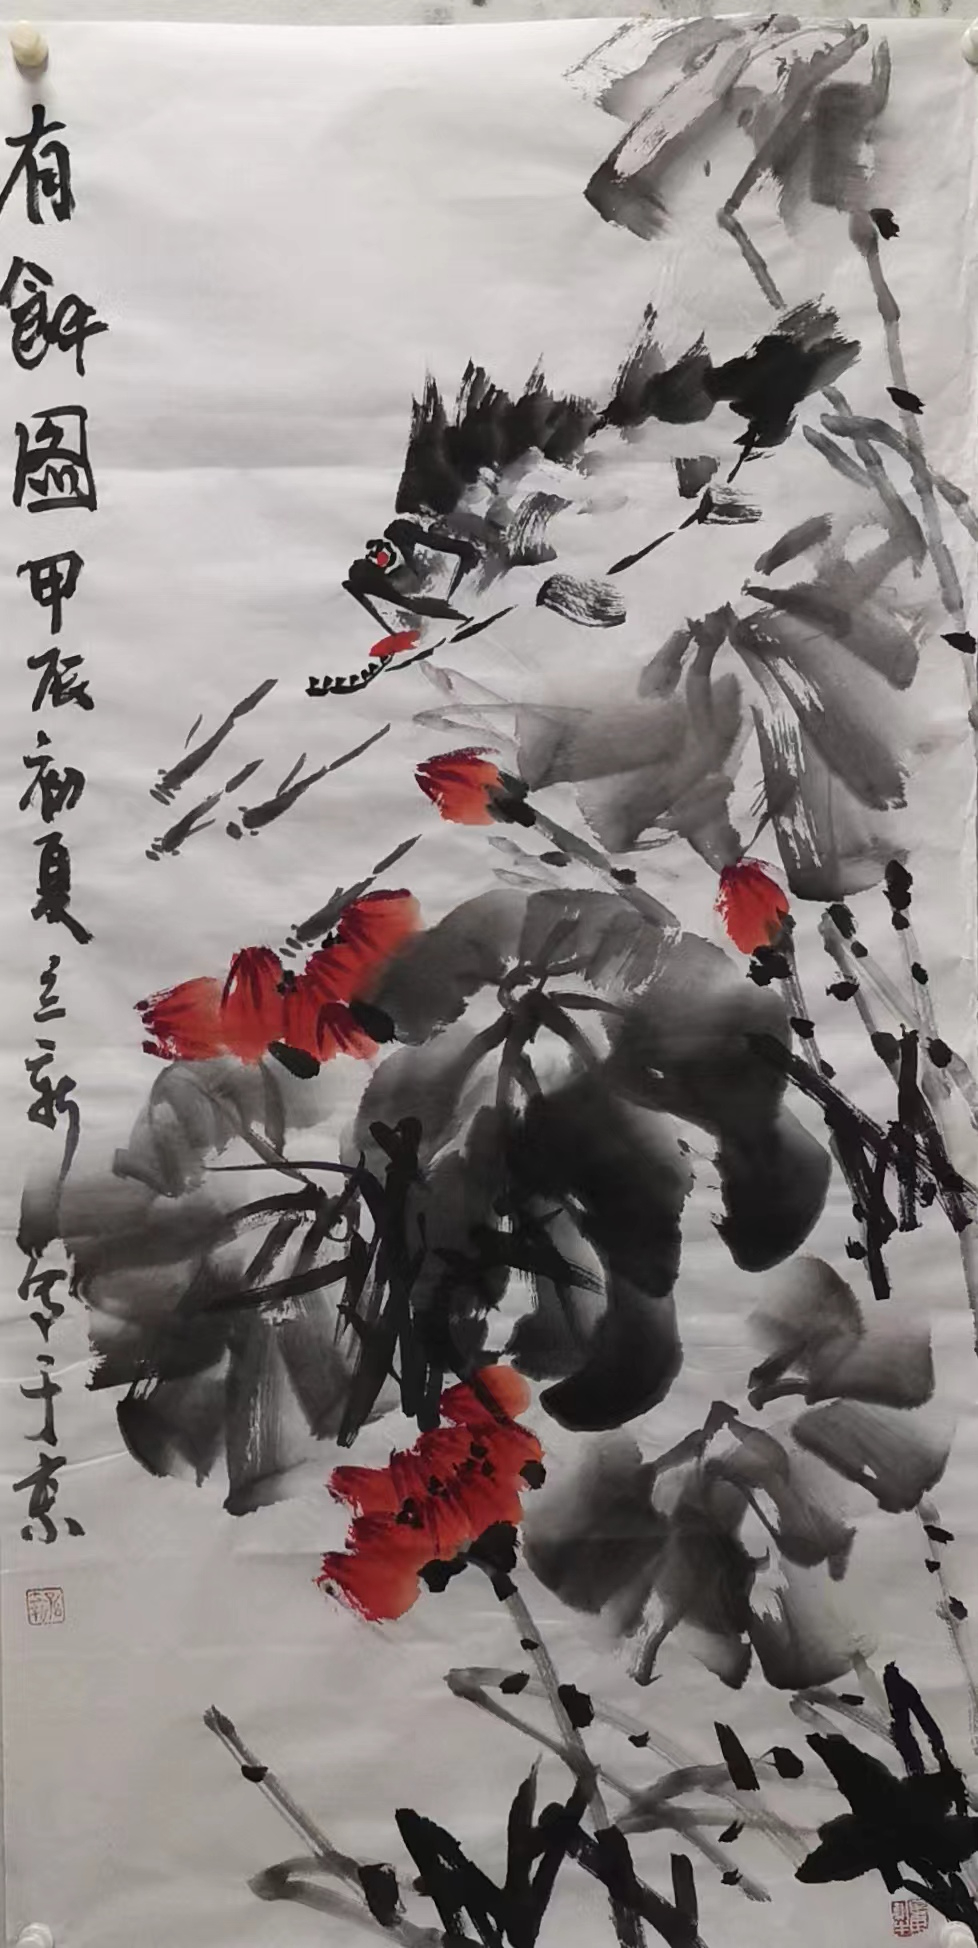 有餘圖甲辰初夏立新寫于京